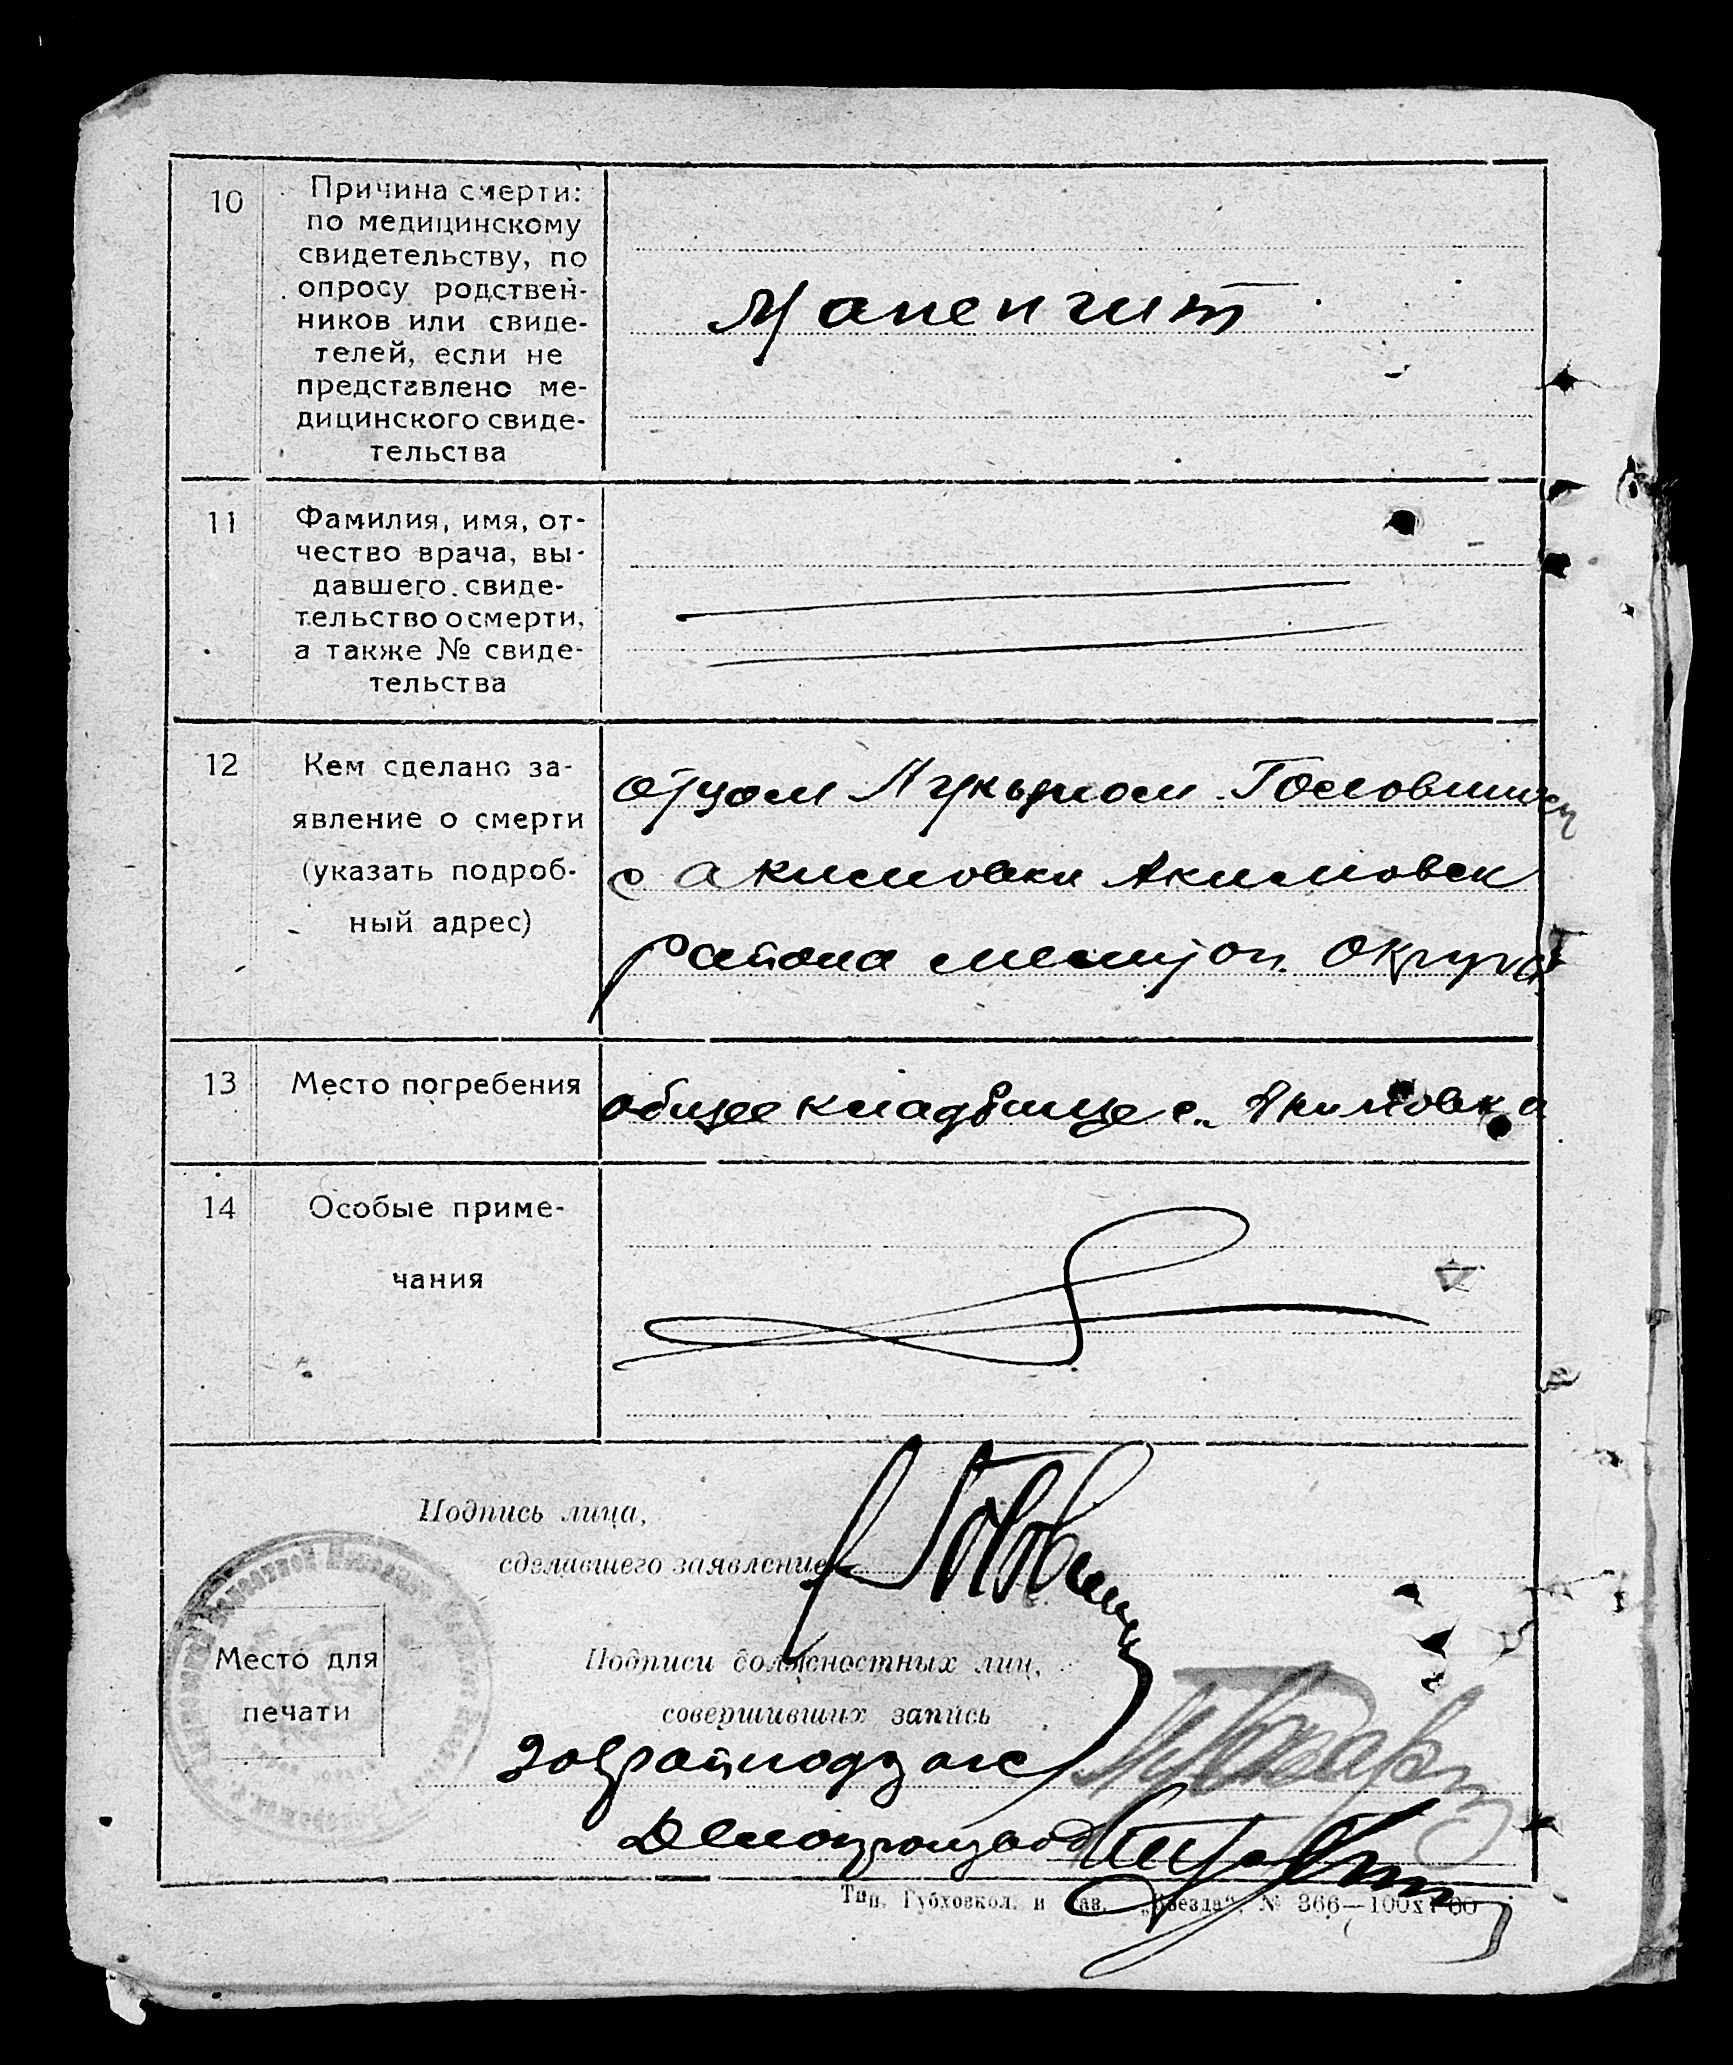 10
Причина смерти:
по медицинскому
свидетельству, по
опросу родствен-
ников или свиде-
телей, если не
представлено ме-
дицинского свиде-
тельства
11
Фамилия, имя, от-
чество врача, вы-
давшего свиде-
тельство о смерти,
а также № свиде-
тельства
12
Кем сделано за-
явление о смерти
(указать подроб-
ный адрес)
отцом
с Акимовки Акимовск
района округа
13
Место погребения
общее кладбище с. Акимовка
14
Особые приме-
чания
Подпись лица,
сделавшего заявление
Место для
печати
Подписи должностных лиц,
совершивших запись
Заврайподзагс
Делопроизвод
Тип. Губхозкол. и газ. „Звезда“, № 366—100х